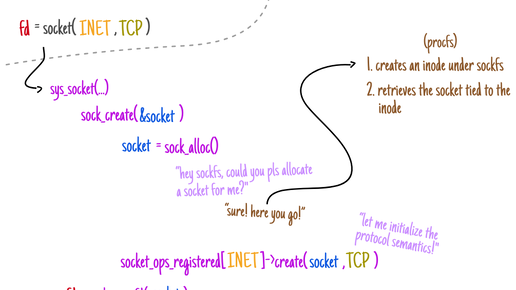 fd = socket( INET , TCP )
sys_socket(...)
sock_create( &socket )
socket = sock_alloc()
"hey sockfs, could you pls allocate
a socket for me?"
"sure! here you go!"
(procfs)
1. creates an inode under sockfs
2. retrieves the socket tied to the
inode
"let me initialize the
protocol semantics!"
socket_ops_registered[ INET ]->create( socket , TCP )